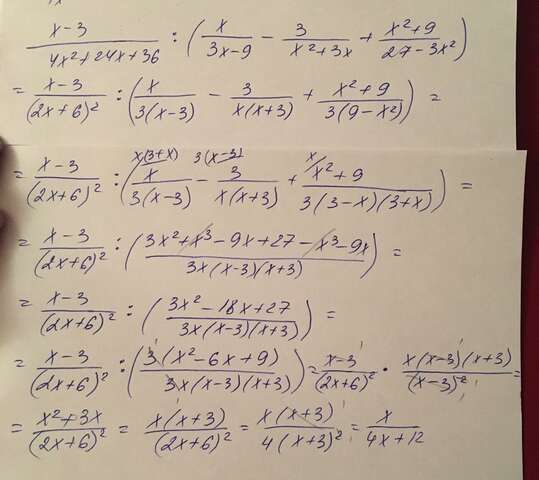 x-3/(4x²+24x+36) : (x/(3x-9) - 3/(x²+3x) + (x²+9)/(27-3x²))
= (x-3)/(2x+6)² : (x/(3(x-3)) - 3/(x(x+3)) + (x²+9)/(3(9-x²))) =
x(3+x) 3(x-3) x
= (x-3)/(2x+6)² : (x/(3(x-3)) - 3/(x(x+3)) + (x²+9)/(3(3-x)(3+x))) =
= (x-3)/(2x+6)² : ((3x²+x³-9x+27-x³-9x)/(3x(x-3)(x+3))) =
= (x-3)/(2x+6)² : ((3x²-18x+27)/(3x(x-3)(x+3))) =
= (x-3)/(2x+6)² : (3(x²-6x+9)/(3x(x-3)(x+3))) = (x-3)/(2x+6)² · x(x-3)(x+3)/(x-3)² =
= (x²+3x)/(2x+6)² = x(x+3)/(2x+6)² = x(x+3)/(4(x+3)²) = x/(4x+12)